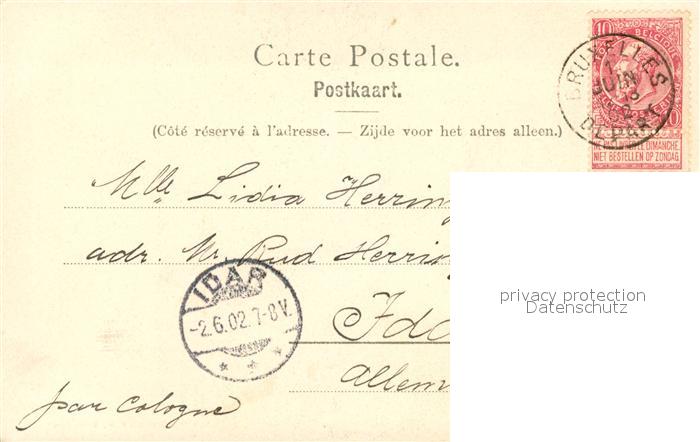 Carte Postale.
Postkaart.
(Côté réservé à l'adresse. — Zijde voor het adres alleen.)
10 BELGIQUE 10
BRUXELLES
JUIN
DEPART
DIMANCHE
NIET BESTELLEN OP ZONDAG
Mlle Lidia Herring
adr. Mr. Rud Herring
IDAR
-2.6.02.7-8V.
Allem
par Cologne
privacy protection
Datenschutz